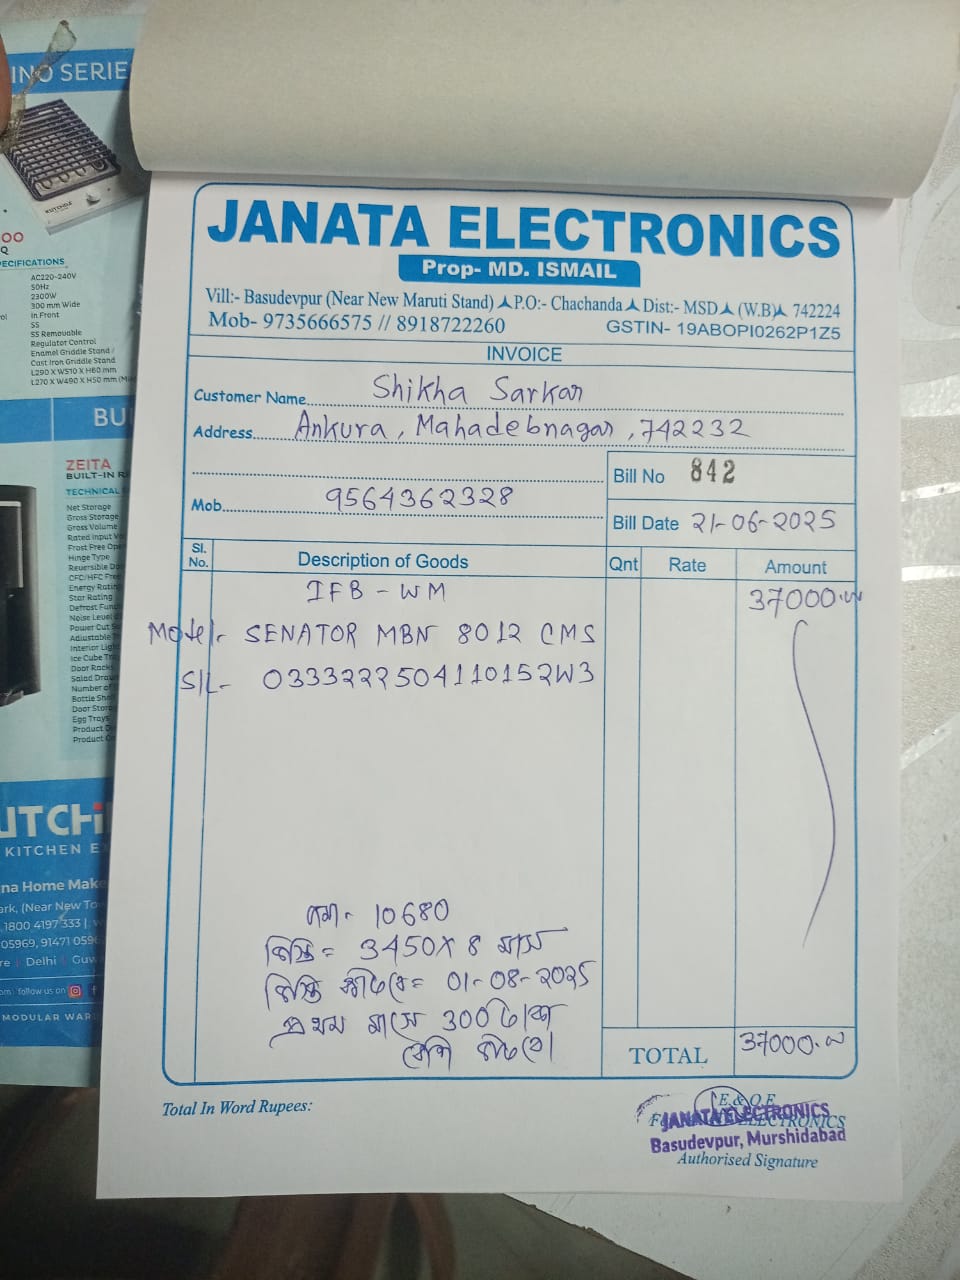 INO SERIE
KUTCHINA
ECIFICATIONS
AC220-240V
50Hz
2300W
300 mm Wide
In Front
SS
SS Removable
Regulator Control
Enamel Griddle Stand /
Cast Iron Griddle Stand
L290 X W510 X H60 mm
L270 X W490 X H50 mm
BUI
ZEITA
BUILT-IN
TECHNICAL
Net Storage
Gross Storage
Gross Volume
Rated Input
Frost Free
Hinge Type
Reversible
CFC/HFC Free
Energy Rating
Star Rating
Defrost
Noise Level
Power Cut
Adjustable
Interior
Ice Cube
Door Racks
Salad
Number of
Bottle
Door
Egg Trays
Product
Product
UTCHI
KITCHEN E
na Home Make
ark, (Near New To
1800 4197 333 |
05969, 91471 0596
re | Delhi | Guw
follow us on
MODULAR WAR
JANATA ELECTRONICS
Prop- MD. ISMAIL
Vill:- Basudevpur (Near New Maruti Stand) P.O:- Chachanda Dist:- MSD (W.B) 742224
Mob- 9735666575 // 8918722260 GSTIN- 19ABOPI0262P1Z5
INVOICE
Customer Name Shikha Sarkar
Address Ankura, Mahadebnagar, 742232
Bill No 842
Mob. 9564362328
Bill Date 21-06-2025
Sl. No. Description of Goods Qnt Rate Amount
IFB - WM 37000.00
Model- SENATOR MBN 8012 CMS
S/L- 0333222504110152W3
জমা- 10680
কিস্তি = 3450 X 8 মাস
কিস্তি 01-08-2025
প্রথম মাসে 300 টাকা
বেশি
TOTAL 37000.00
Total In Word Rupees:
E.& O.E
JANATA ELECTRONICS
Basudevpur, Murshidabad
Authorised Signature